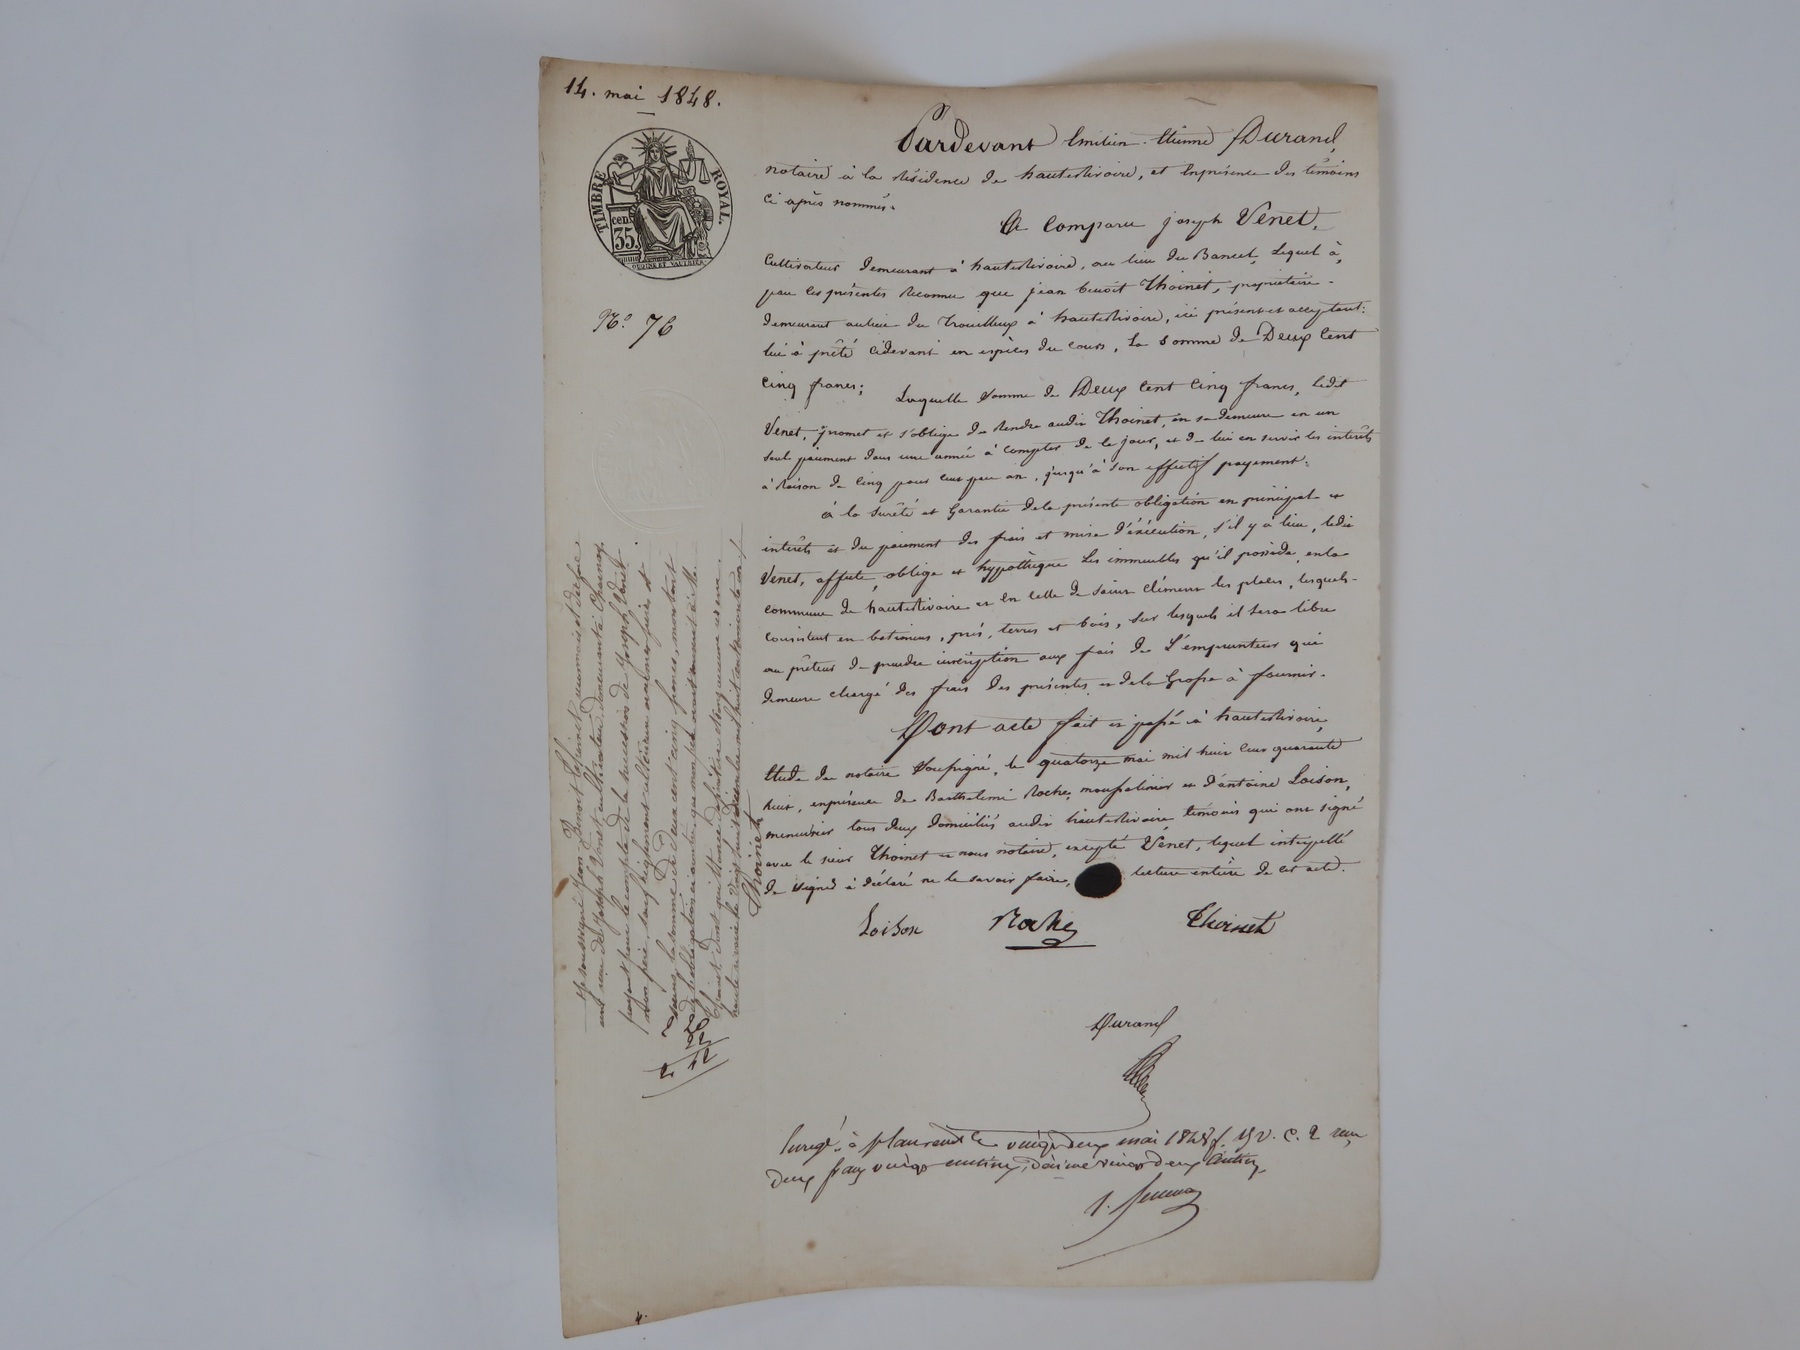 14. mai 1848.
TIMBRE ROYAL.
cen.
35.
N.o 76
Pardevant Emilien Etienne Durand,
notaire à la résidence de hauterivoire, et enprésence des témoins
ci après nommés.
A Comparu joseph Venet,
Cultivateur demeurant à hauterivoire, au lieu du Bancet, Lequel à,
par ces présentes reconnu que jean benoit Thoinet, propriétaire
demeurant aulieu du Trouilleux à hauterivoire, ici présent et acceptant:
lui à prêté cidevant en espèces du cours, la somme de Deux Cent
Cinq francs;
Laquelle somme de Deux Cent Cinq francs, ledit
Venet, promet et s'oblige de rendre audit Thoinet, en sa demeure en un
seul paiment dans une année à compter de ce jour, et de lui en servir les intérêts
à raison de cinq pour cent par an, jusqu'à son effectif payement:
à la sureté et garantie dela présente obligation en principal et
intérêts et du paiement des frais et mise d'éxécution, s'il y a lieu, ledit
Venet, affecte, oblige et hypothèque Les immeubles qu'il possède enla
commune de hauterivoire et en celle de Saint Clément les places, lesquels
consistent en batimens, prés, terres et bois, sur lesquels il sera libre
au prêteur de prendre inscription aux frais de L'emprunteur qui
demeure chargé des frais des présentes et dela Grosse à fournir.
Dont acte fait et passé à hauterivoire,
Etude du notaire soussigné, le quatorze mai mil huit cent quarante
huit, enprésence de Barthelemi Roche, mousselinier et d'antoine Loison,
menuisier tous deux domiciliés audit hauterivoire témoins qui ont signé
avec le sieur Thoinet et nous notaire, excepté Vénet, lequel interpellé
de signer à déclaré ne le savoir faire, lecture entière de cet acte.
Loison Roche Thoinet
Durand
Enregé. à St Laurent le vingt deux mai 1848 f. 152. C. 2 reçu
deux francs vingt centimes, décime vingt deux centimes
Je soussigné Jean Benoit Thoinet
de Joseph Venet cultivateur
payant pour le compte de la succession de Joseph Venet
son père, sauf règlement ultérieur avec
la somme de deux cent cinq francs, montant
de l'obligation ci contre
Dont quittance définitive
Thoinet
2 20
22
2 42